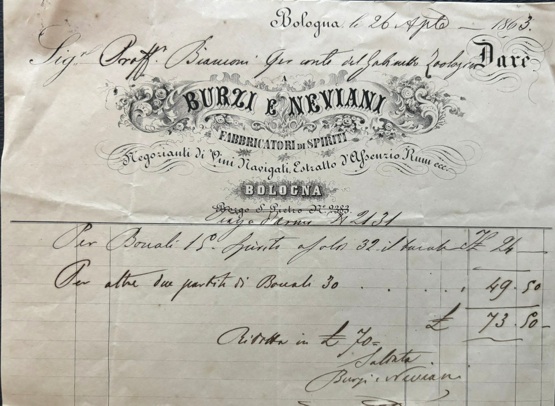 Bologna li 26 Agto — 1863.
Sigr. Proffr. Bianconi per conto del Gabinetto Zoologico Dare
A
BURZI E NEVIANI
FABBRICATORI DI SPIRITI
Negozianti di Vini Navigati, Estratto d'Assenzio Rum ecc.
BOLOGNA
Borgo S. Pietro No. 2253
No 2131
Per Boccali 15 Spirito a Soldi 32 il boccale £ 24 —
Per altre due partite di Boccali 30 . . . . . 49.50
£ 73.50 —
Ridotta in £ 70 =
Saldata
Burzi e Neviani